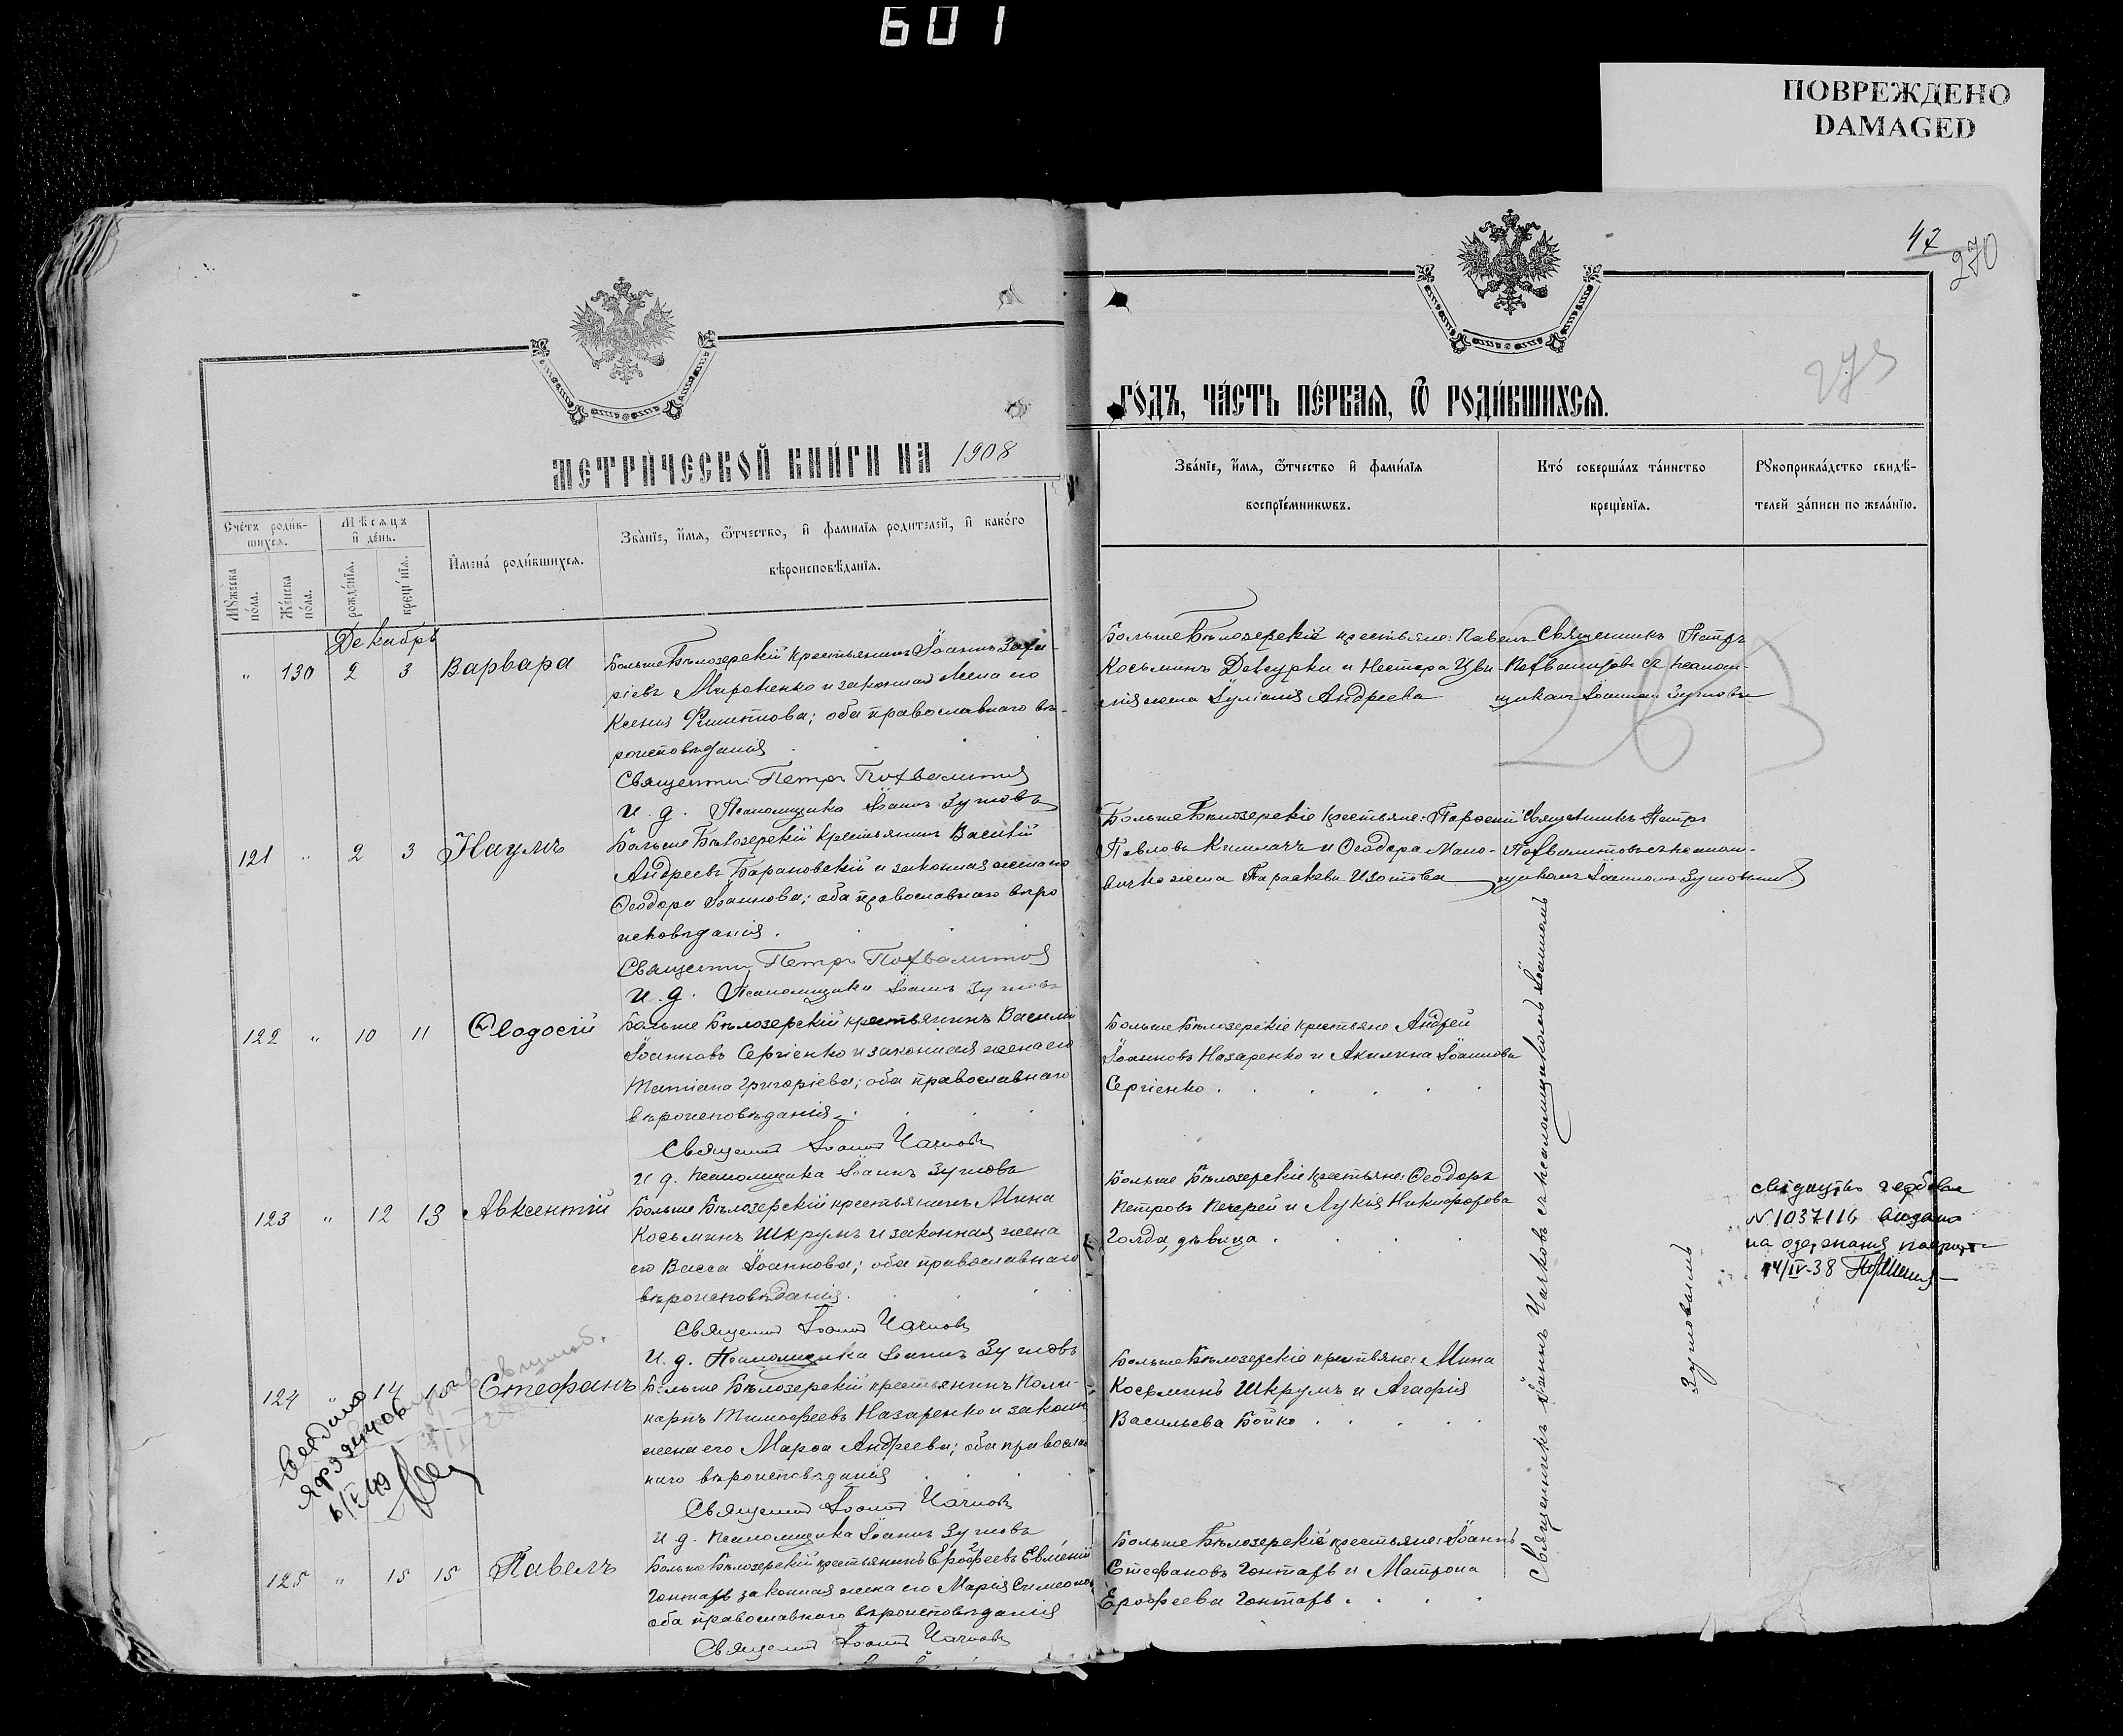 601
ПОВРЕЖДЕНО
DAMAGED
47
270
273
МЕТРИЧЕСКОЙ КНИГИ НА 1908
ГОДЪ, ЧАСТЬ ПЕРВАЯ, Ѿ РОДИВШИХСЯ.
Счетъ родив-
шихся.
Мѣсяцъ
и день.
Мужеска
пола.
Женска
пола.
рожденїя.
крещенїя.
Имена родившихся.
Званїе, имя, ѿтчество, и фамилїя родителей, и какого
вѣроисповѣданїя.
Званїе, имя, ѿтчество и фамилїя
воспрїемникѡвъ.
Кто совершалъ таинство
крещенїя.
Рукоприкладство свидѣ-
телей записи по желанїю.
Декабрь
" 130 2 3 Варвара
Больше Бѣлозерскій крестьянинъ Іоаннъ
Мироненко и законная жена его
Ксенія Филиппова; оба православнаго вѣ-
роисповѣданія
Священ. Петръ Похвалитовъ
И. д. Псаломщика Іоаннъ Зутовъ
Больше Бѣлозерскіе крестьяне: Павелъ
Косьминъ и Нестора
жена Іуліанія Андреева
Священникъ Петръ
Похвалитовъ съ псалом-
щикомъ Іоанномъ Зутовы
263
121 " 2 3 Наумъ
Больше Бѣлозерскій крестьянинъ Василій
Андреевъ Барановскій и законная жена его
Ѳеодора Іоаннова; оба православнаго вѣро
исповѣданія.
Священ. Петръ Похвалитовъ
И. д. Псаломщика Іоаннъ Зутовъ
Больше Бѣлозерскіе крестьяне:
Павловъ и Ѳеодора
жена Параскева Изотова
Священникъ Петръ
Похвалитовъ съ псалом-
щикомъ Іоанномъ Зутовымъ
122 " 10 11 Ѳеодосій
Больше Бѣлозерскій крестьянинъ Василій
Іоанновъ Сергіенко и законная жена его
Татіана Григоріева; оба православнаго
вѣроисповѣданія.
Священ Іоаннъ
И д. псаломщика Іоаннъ Зутовъ
Больше Бѣлозерскіе крестьяне Андрей
Іоанновъ Назаренко и Акилина Іоаннова
Сергіенко.
123 " 12 13 Авксентій
Больше Бѣлозерскій крестьянинъ Мина
Косьминъ Шкрумъ и законная жена
его Васса Іоаннова; оба православнаго
вѣроисповѣданія.
Священ Іоаннъ
И. д. Псаломщика Іоаннъ Зутовъ
Больше Бѣлозерскіе крестьяне: Ѳеодоръ
Петровъ и Лукія Никифорова
Голда, дѣвица.
N 1037116 видано
на одержання
14/IV-38
124 " 14 15 Стефанъ
Больше Бѣлозерскій крестьянинъ Поли-
карпъ Тимоѳеевъ Назаренко и законн
жена его Марѳа Андреева; оба православ
наго вѣроисповѣданія
Священ Іоаннъ
И д. псаломщика Іоаннъ Зутовъ
Больше Бѣлозерскіе крестьяне: Мина
Косьминъ Шкрумъ и Агафія
Васильева Бойко.
125 " 15 15 Павелъ
Больше Бѣлозерскій крестьянинъ Ерофеевъ Евменій
Гонтарь законная жена его Марія Симеонов
оба православнаго вѣроисповѣданія
Священ Іоаннъ
Больше Бѣлозерскіе крестьяне: Іоаннъ
Стефановъ Гонтарь и Матрона
Ерофеева Гонтарь.
Священникъ Іоаннъ съ псаломщикомъ Іоанномъ
Зутовымъ